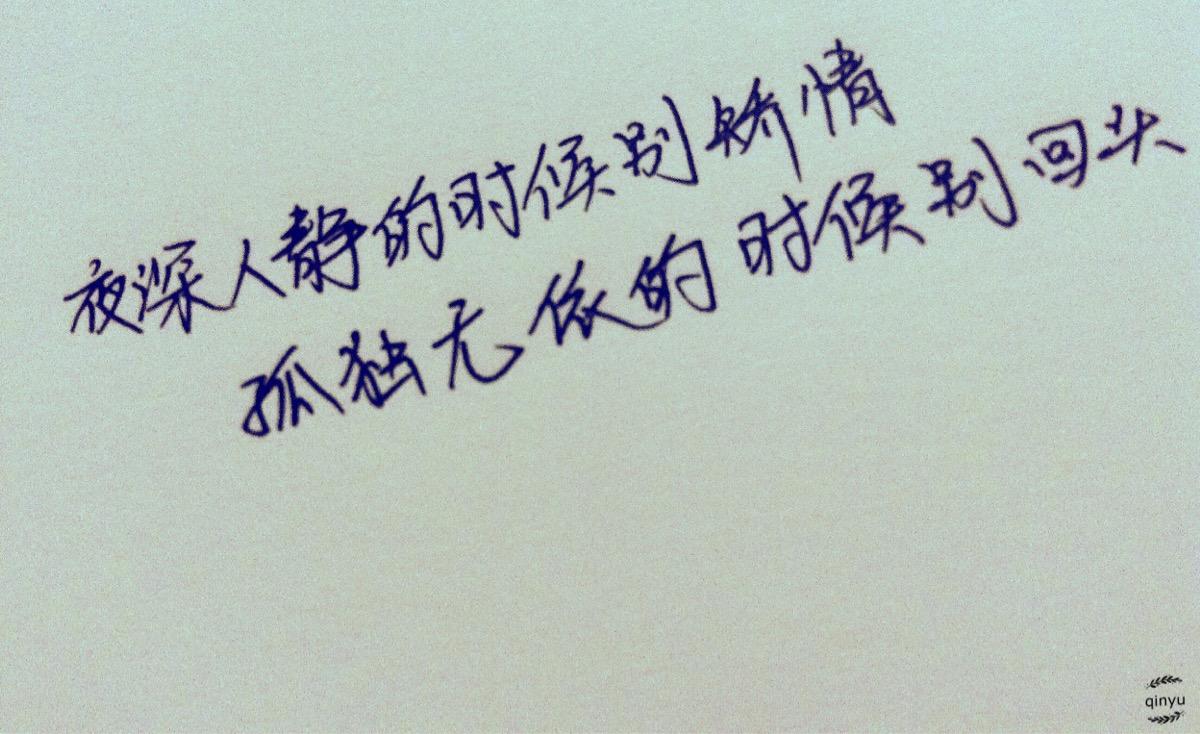 夜深人静的时候别矫情
孤独无依的时候别回头
qinyu